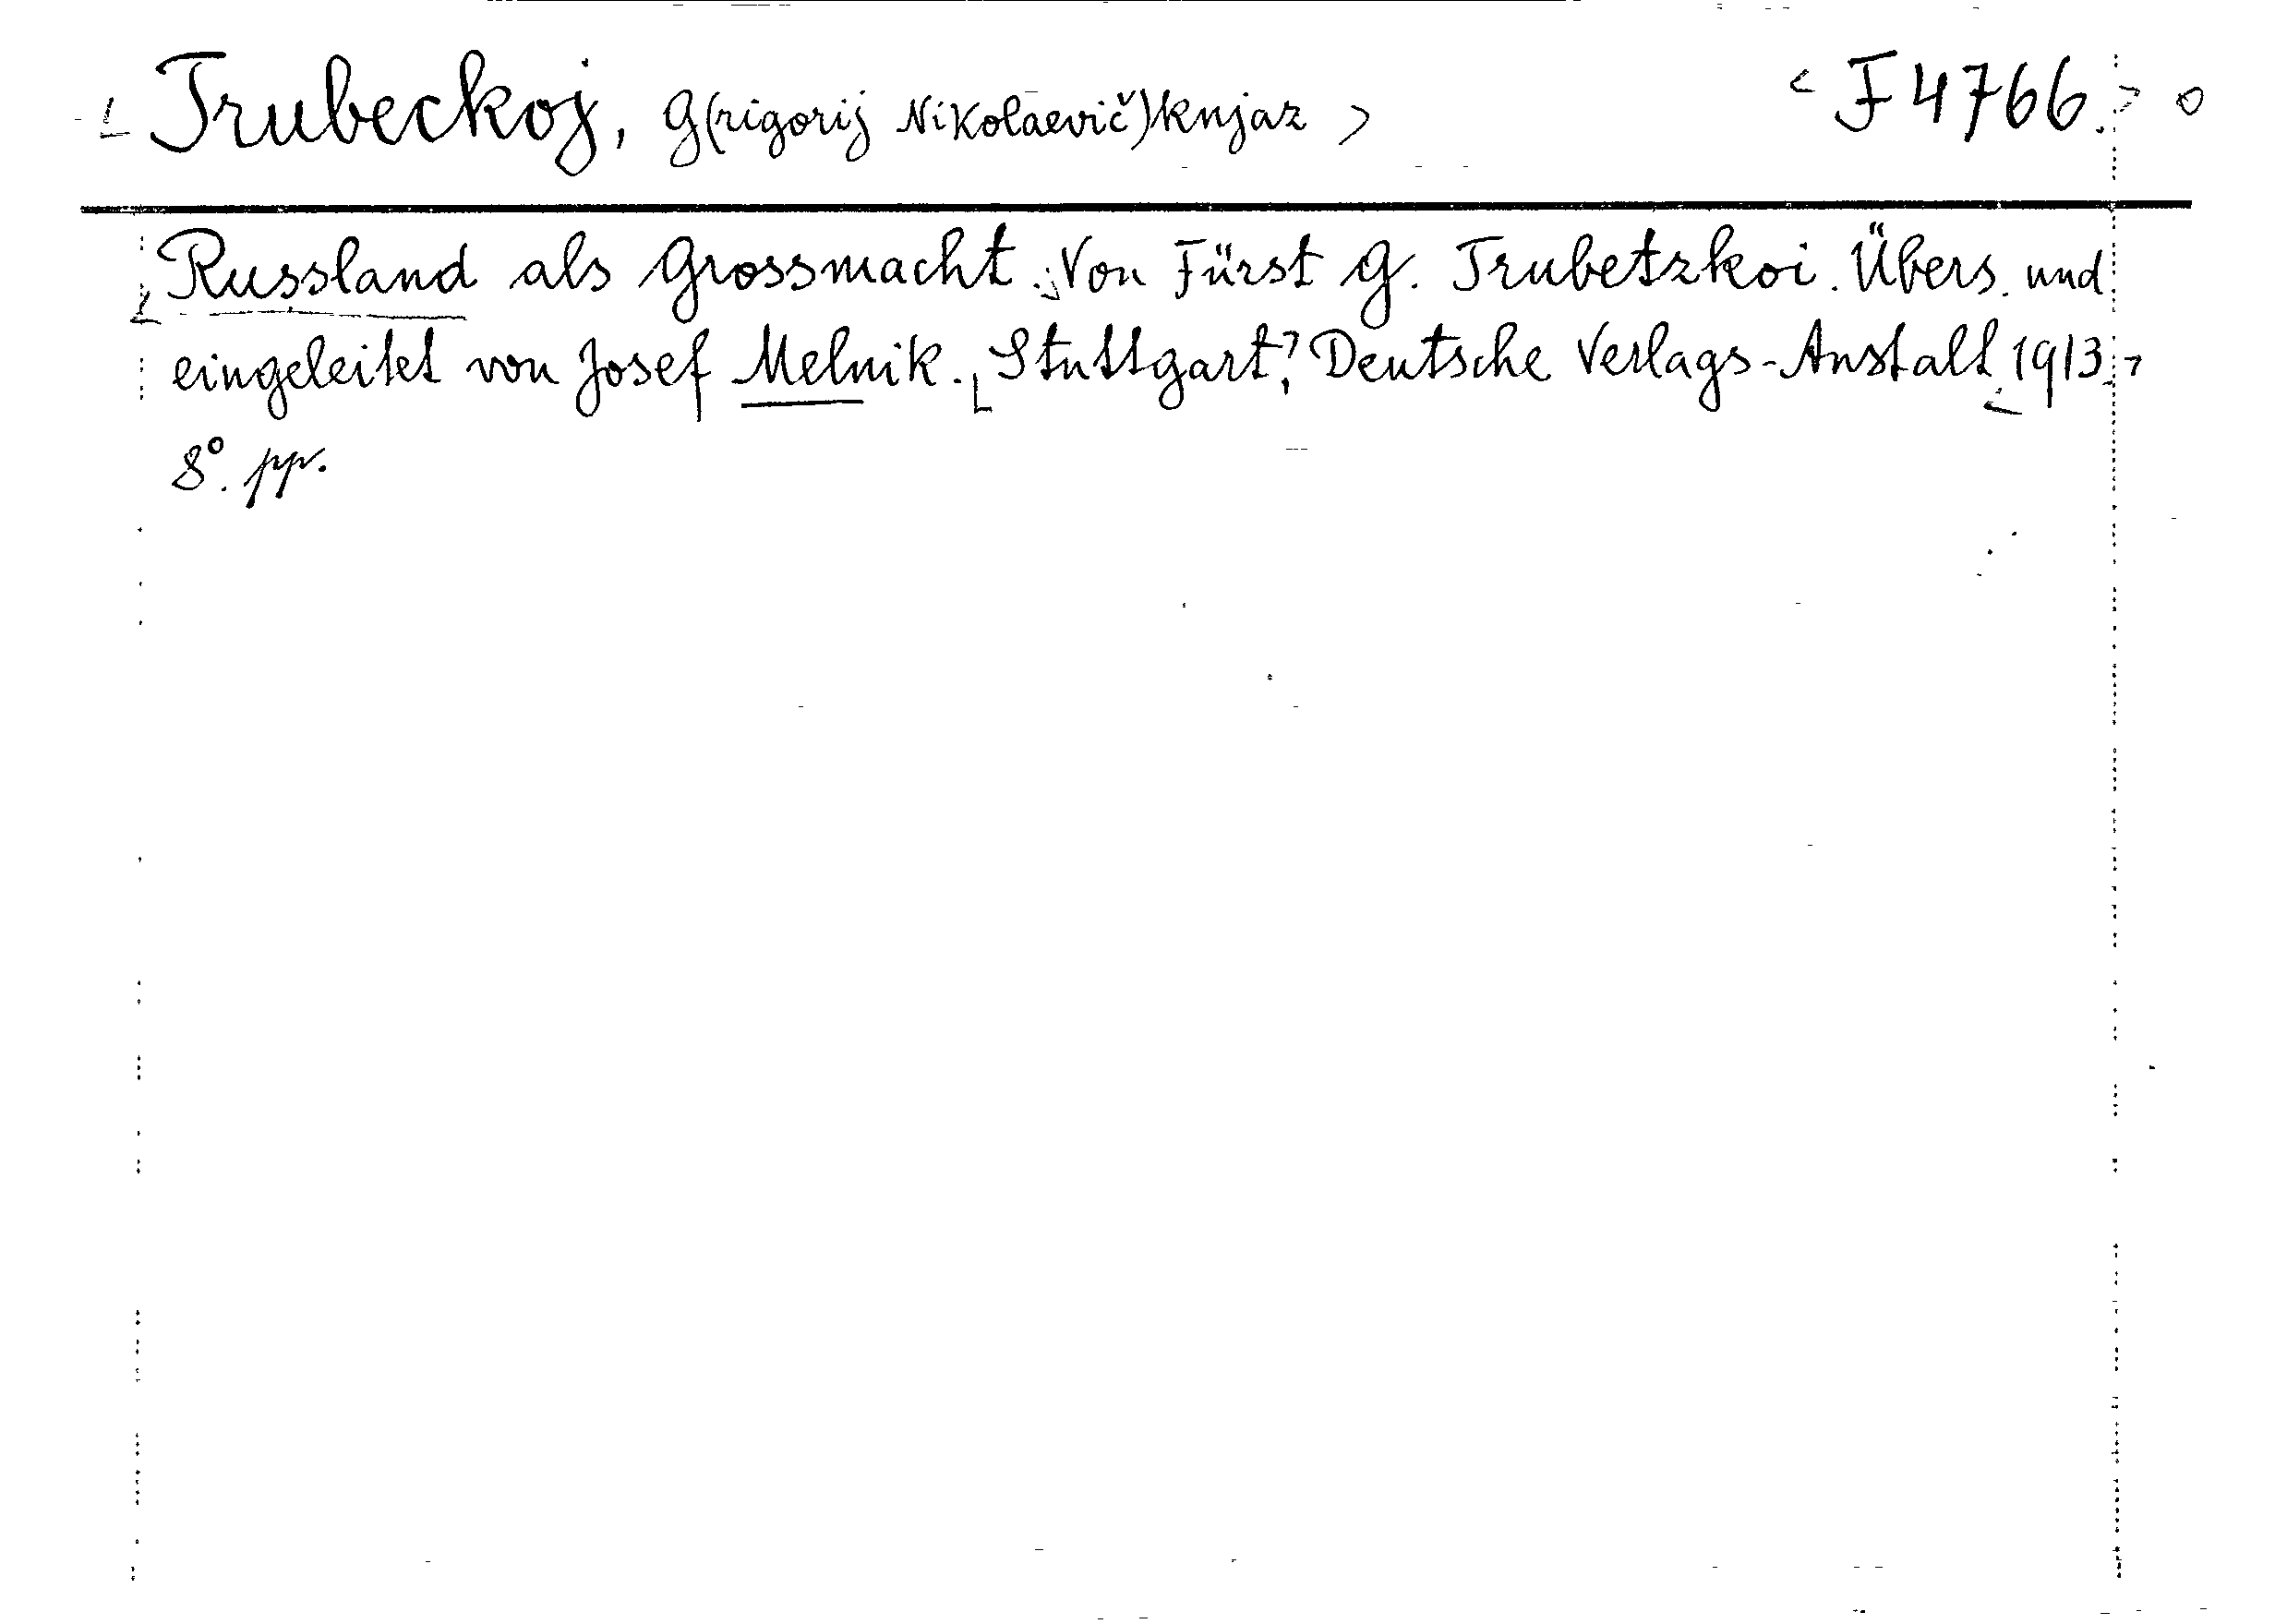 Trubeckoj, G(rigorij Nikolaevič) knjaz > < F 4766. > 0
Russland als Grossmacht. Von Fürst G. Trubetzkoi. Übers. und
eingeleitet von Josef Melnik. Stuttgart, Deutsche Verlags-Anstalt 1913.
8°. pp.